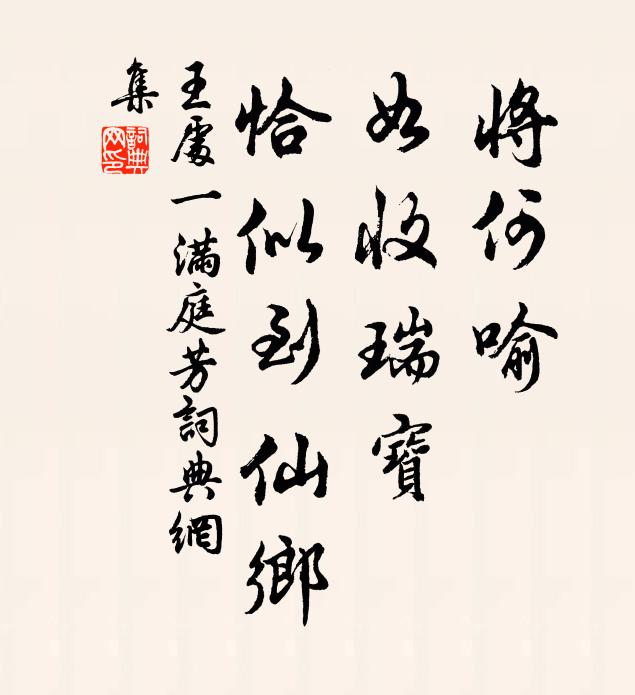 將何喻
如收瑞寶
恰似到仙鄉
王處一滿庭芳詞典網
集
詞典
网印